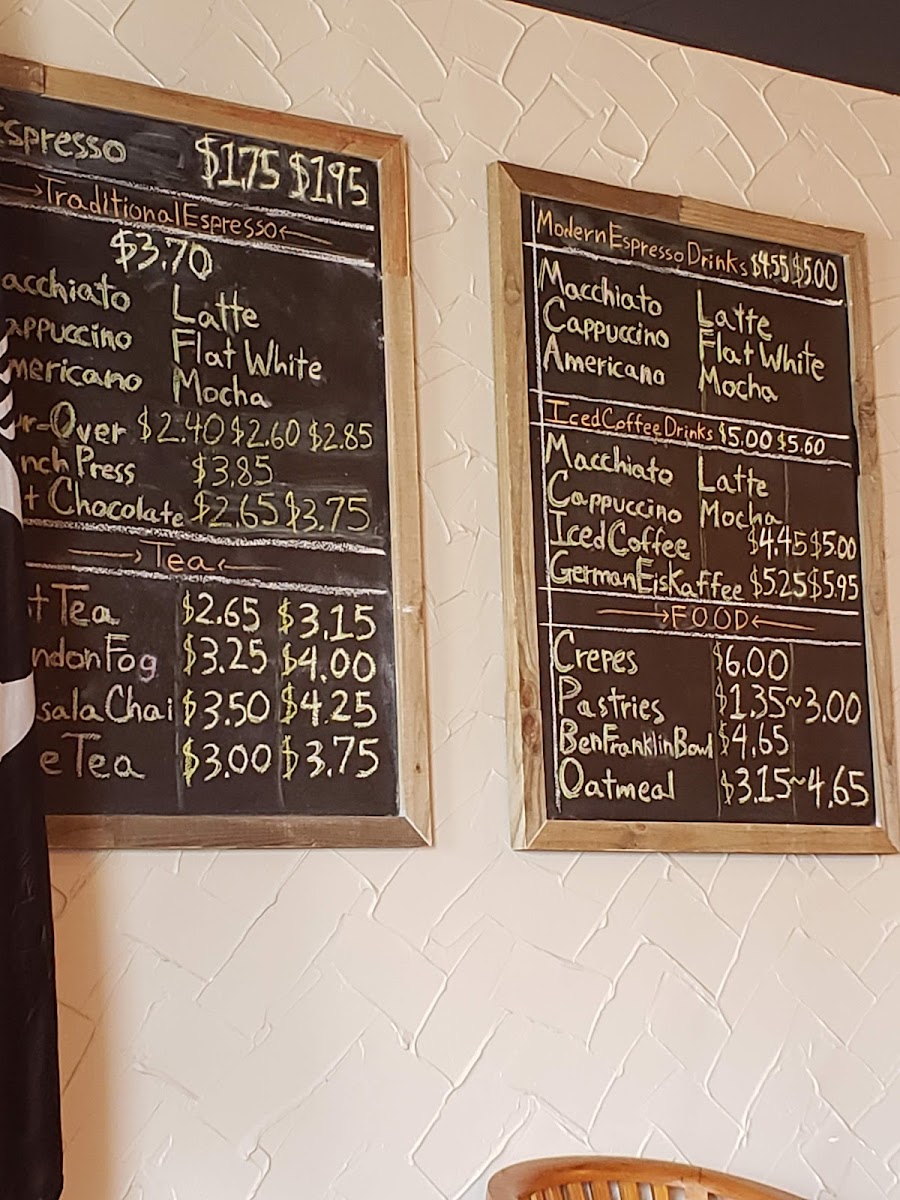 Espresso $1.75 $1.95
Traditional Espresso
$3.70
acchiato Latte
appuccino Flat White
mericano Mocha
ur-Over $2.40 $2.60 $2.85
nch Press $3.85
t Chocolate $2.65 $3.75
Tea
t Tea $2.65 $3.15
ndon Fog $3.25 $4.00
sala Chai $3.50 $4.25
e Tea $3.00 $3.75
Modern Espresso Drinks $4.55 $5.00
Macchiato Latte
Cappuccino Flat White
Americano Mocha
Iced Coffee Drinks $5.00 $5.60
Macchiato Latte
Cappuccino Mocha
Iced Coffee $4.45 $5.00
German Eiskaffee $5.25 $5.95
FOOD
Crepes $6.00
Pastries $1.35~3.00
Ben Franklin Bowl $4.65
Oatmeal $3.15~4.65